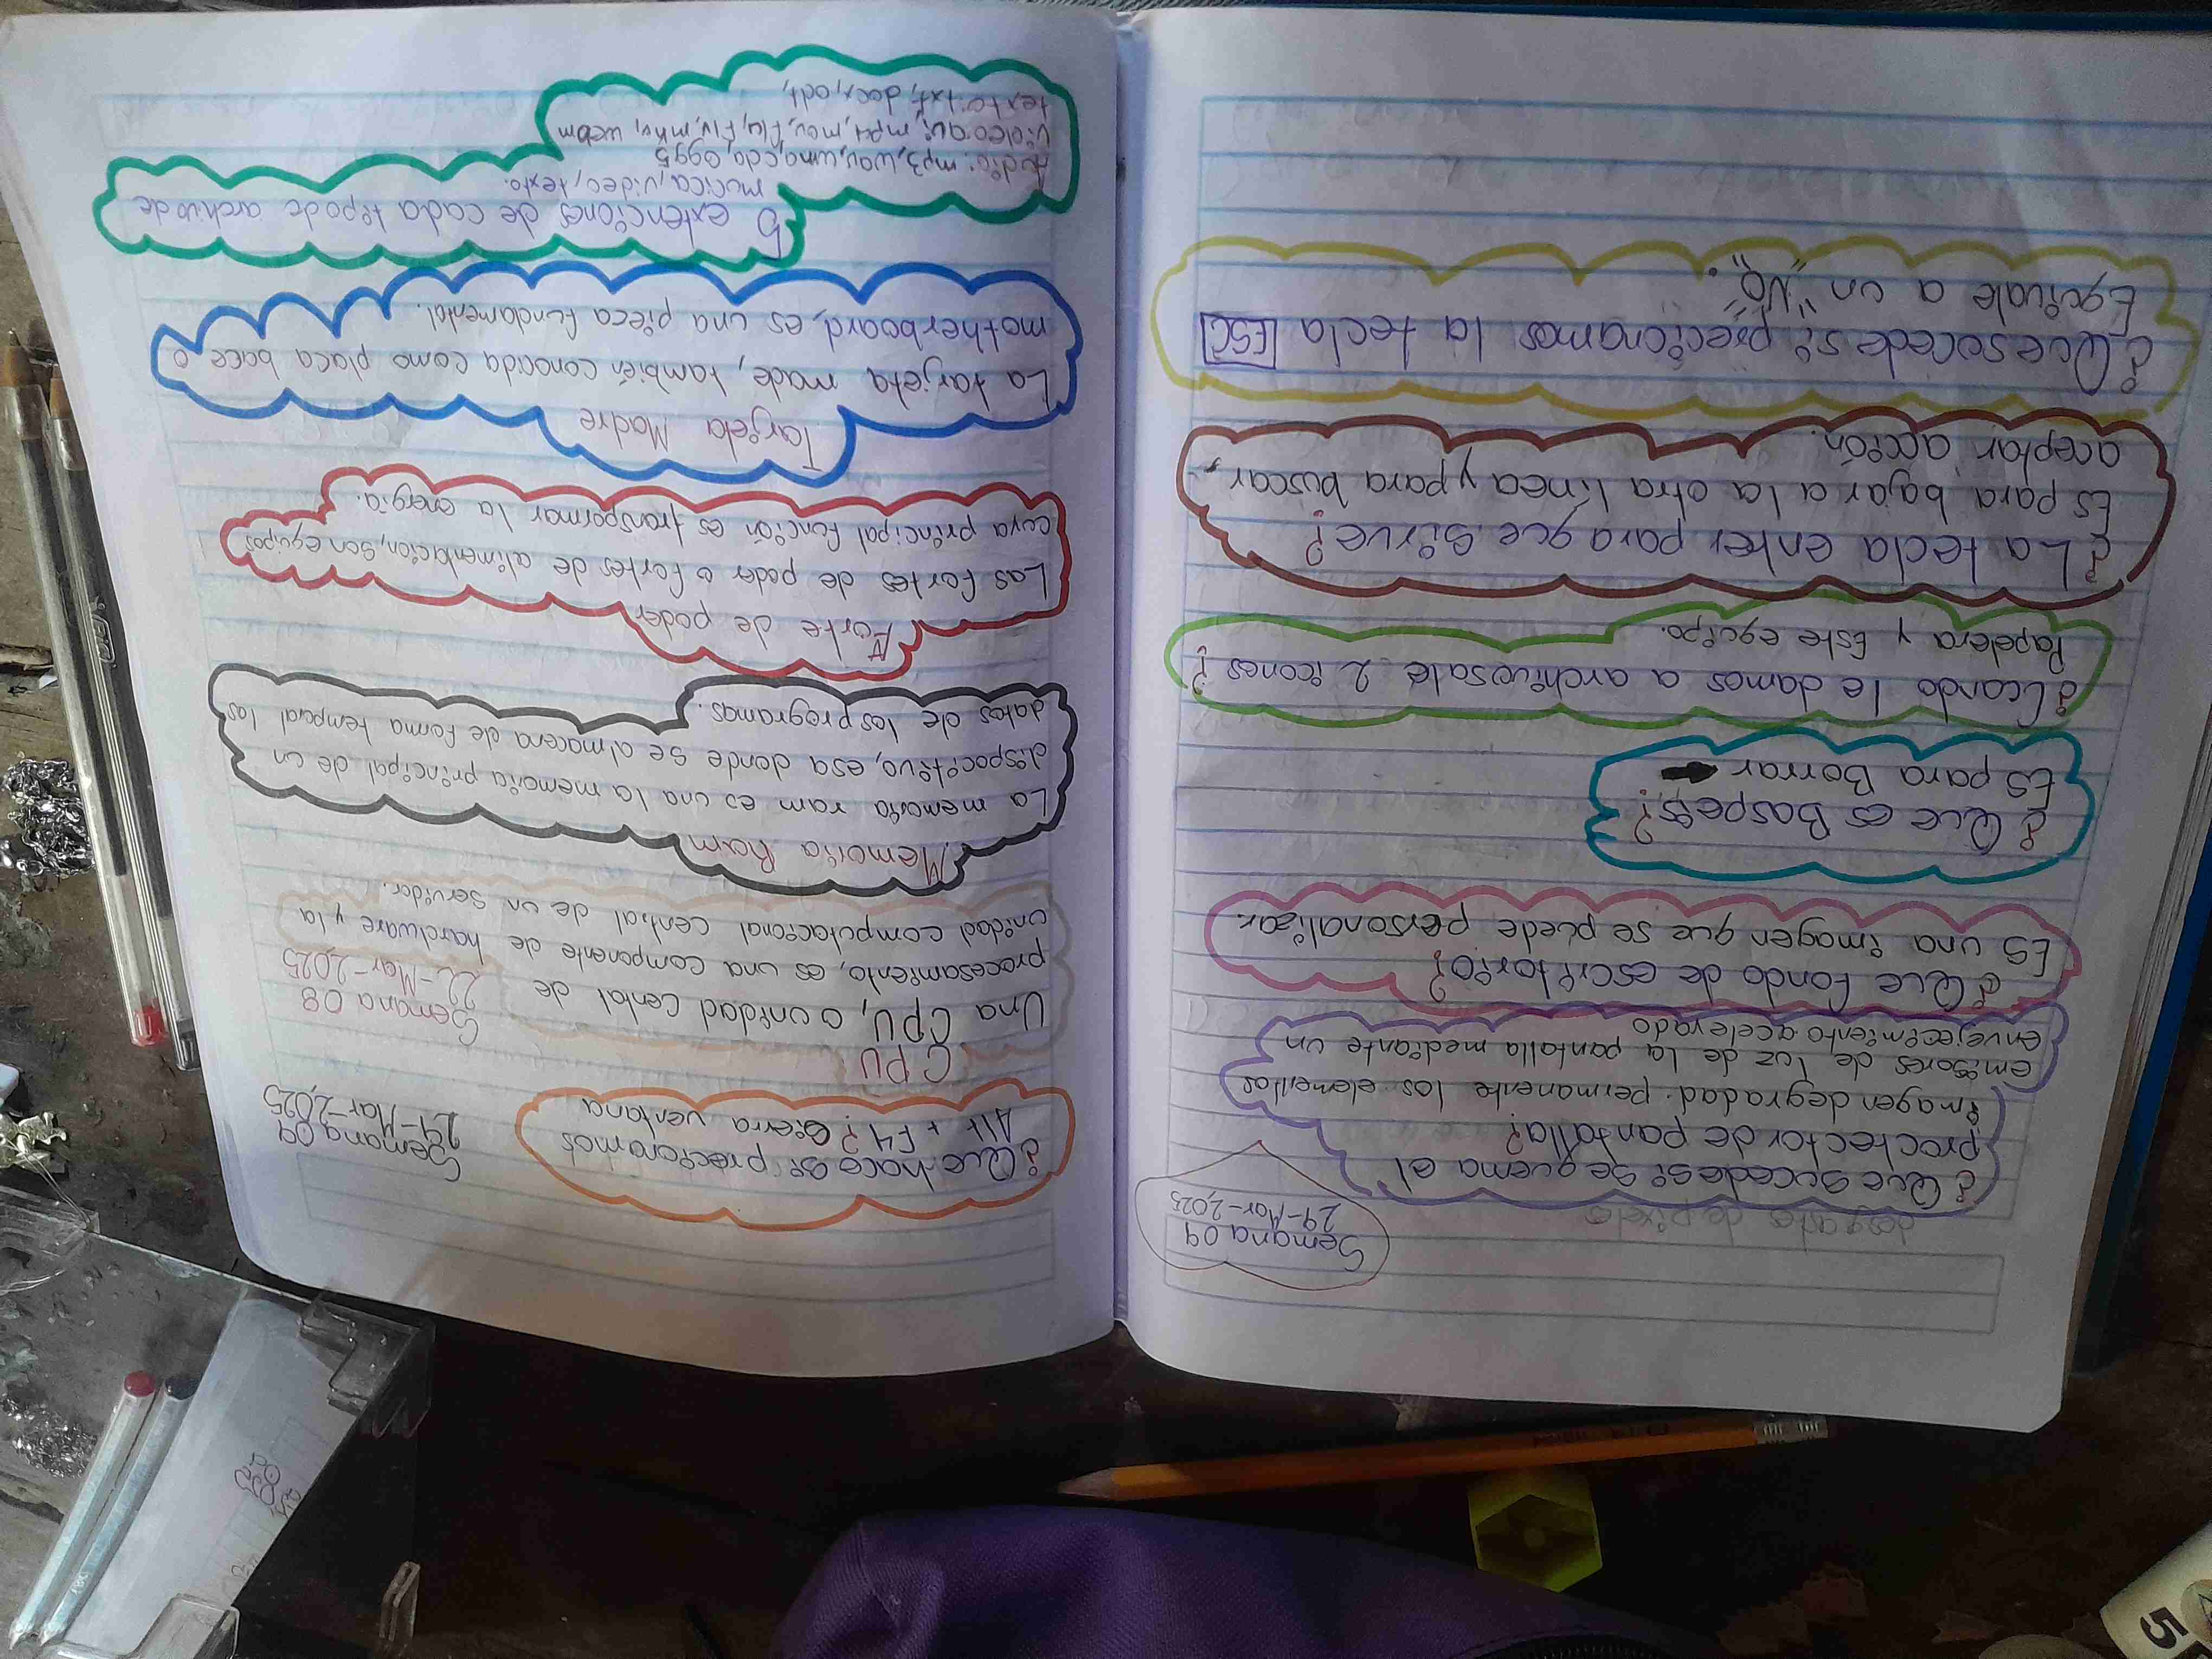 desgaste de pixeles
Semana 09
29-Mar-2,025
¿Que sucede si se quema el
prochector de pantalla?
imagen degradad. permanente los elementos
emisores de luz de la pantalla mediante un
envejecimiento acelerado
¿Que fondo de escritorio?
ES una imagen que se puede personalizar.
¿Que es Baspeis?
ES para Borrar
¿Cuando le damos a archivo sale 2 iconos?
Papelera y Este equipo.
¿La tecla enter para que sirve?
Es para bajar a la otra linea y para buscar,
aceptar acción.
¿Que socede si precionamos la tecla ESC
Equivale a un "NO".
¿Que hace si precionamos
Alt + F4? Cierra ventana
Semana 09
29-Mar-2,025
CPU
Semana 08
22-Mar-2,025
Una CPU, o unidad Cental de
procesamiento, es una componente de hardware y la
unidad computacional central de un servidor.
Memoria Ram
La memoria ram es una la memoria principal de un
dispocitivo, esa donde se almacena de forma temporal los
datos de los programas.
Furte de poder
Las fortes de poder o fortes de alimentación, son equipos
cuya principal función es transpormar la energia.
Tarjeta Madre
La tarjeta made, también conocida como placa bace o
motherboard, es una pieca fundamental.
5 extenciones de cada tipo de archivo de
mucica, video, texto.
Audio: mp3, wav, wma, cda, ogg5
video: avi, mp4, mov, flv, mkv, webm
texto: txt, docx, odt,
5